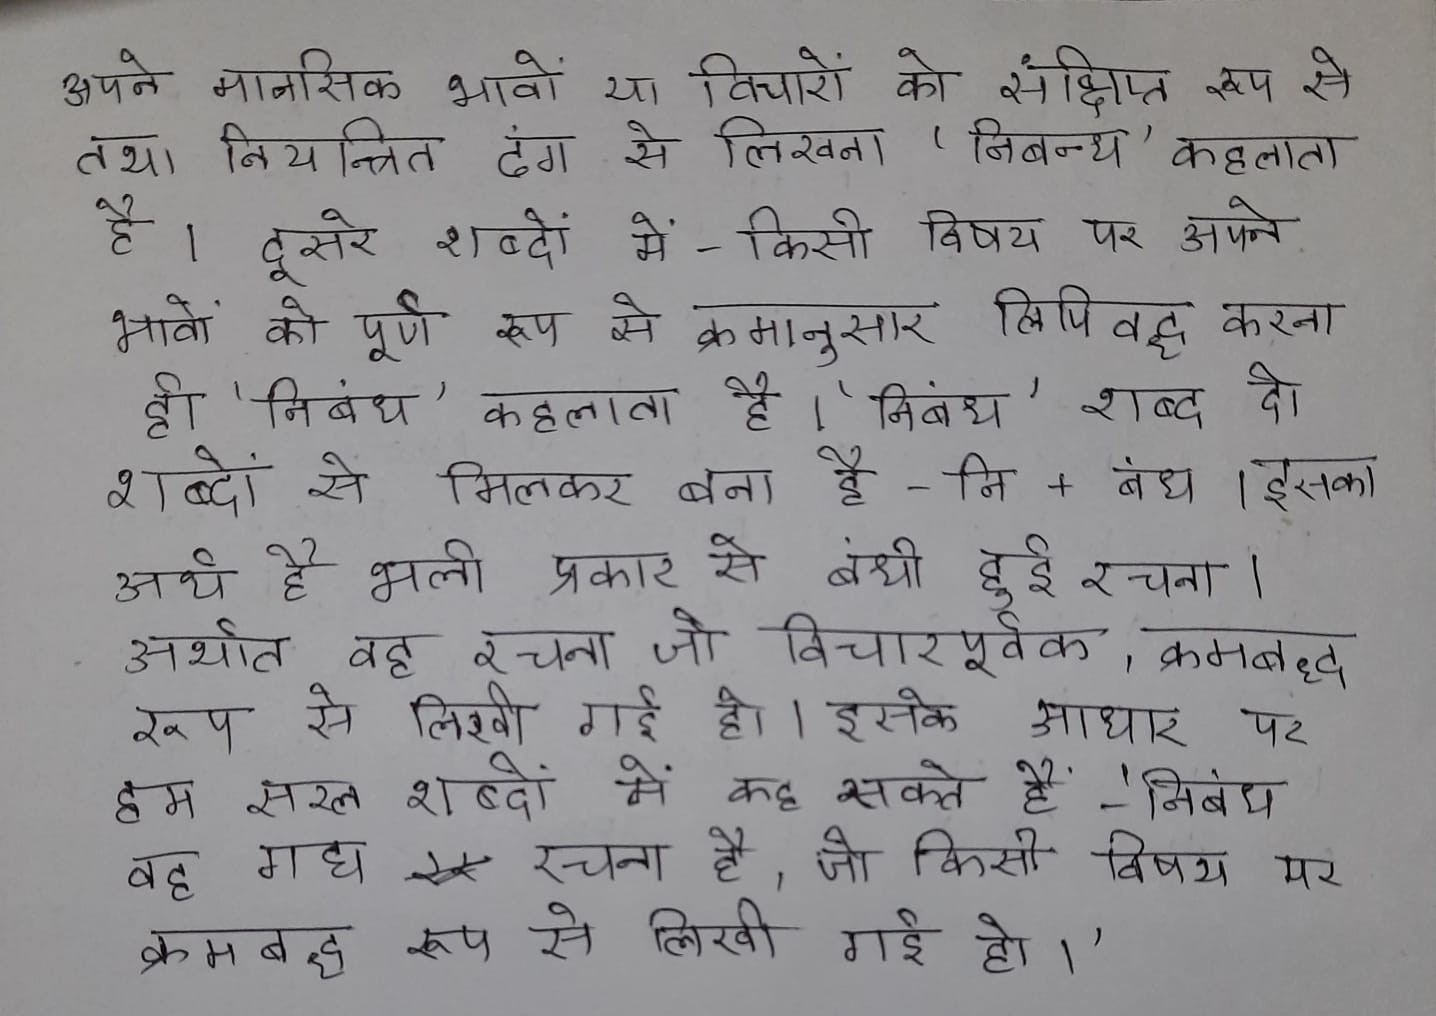 अपने मानसिक भावों या विचारों को संक्षिप्त रूप से
तथा नियन्त्रित ढंग से लिखना 'निबन्ध' कहलाता
है । दूसरे शब्दों में - किसी विषय पर अपने
भावों को पूर्ण रूप से क्रमानुसार लिपिवद्ध करना
ही 'निबंध' कहलाता है । 'निबंध' शब्द दो
शब्दों से मिलकर बना है - नि + बंध । इसका
अर्थ है भली प्रकार से बंधी हुई रचना ।
अर्थात वह रचना जो विचारपूर्वक, क्रमबद्ध
रूप से लिखी गई हो । इसके आधार पर
हम सरल शब्दों में कह सकते हैं - 'निबंध
वह गद्य रचना है, जो किसी विषय पर
क्रमबद्ध रूप से लिखी गई हो ।'